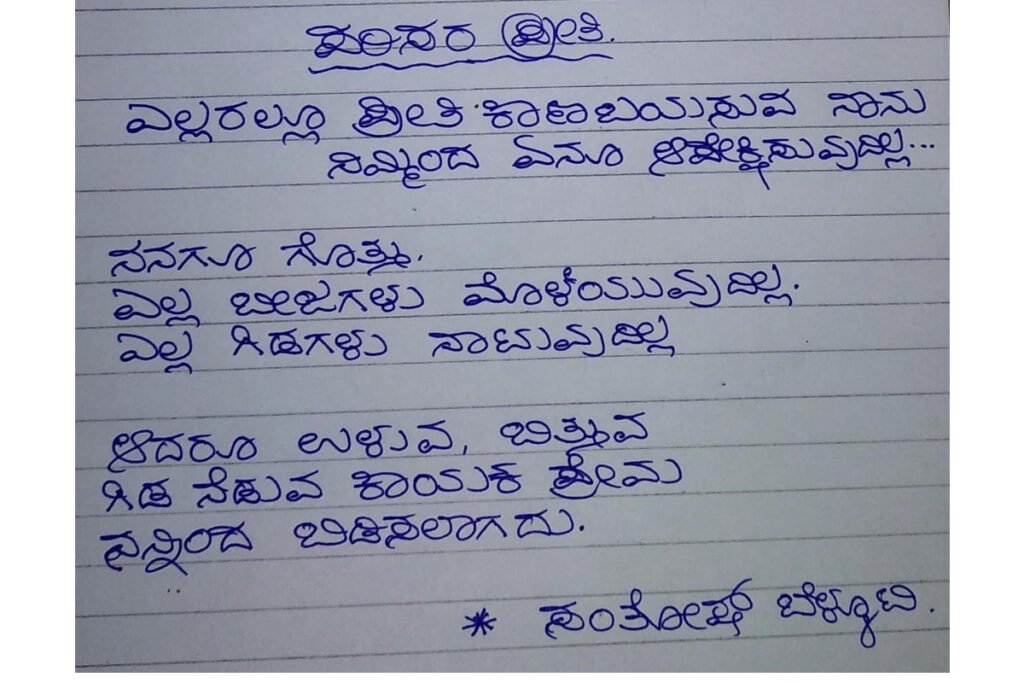 ಪರಿಸರ ಪ್ರೀತಿ.
ಎಲ್ಲರಲ್ಲೂ ಪ್ರೀತಿ ಕಾಣಬಯಸುವ ನಾನು
ನಿಮ್ಮಿಂದ ಏನೂ ಅಪೇಕ್ಷಿಸುವುದಿಲ್ಲ...
ನನಗೂ ಗೊತ್ತು.
ಎಲ್ಲ ಬೀಜಗಳು ಮೊಳೆಯುವುದಿಲ್ಲ.
ಎಲ್ಲ ಗಿಡಗಳು ನಾಟುವುದಿಲ್ಲ
ಆದರೂ ಉಳುವ, ಬಿತ್ತುವ
ಗಿಡ ನೆಡುವ ಕಾಯಕ ಪ್ರೇಮ
ನನ್ನಿಂದ ಬಿಡಿಸಲಾಗದು.
* ಸಂತೋಷ್ ಬೆಳ್ಳೂಟಿ.